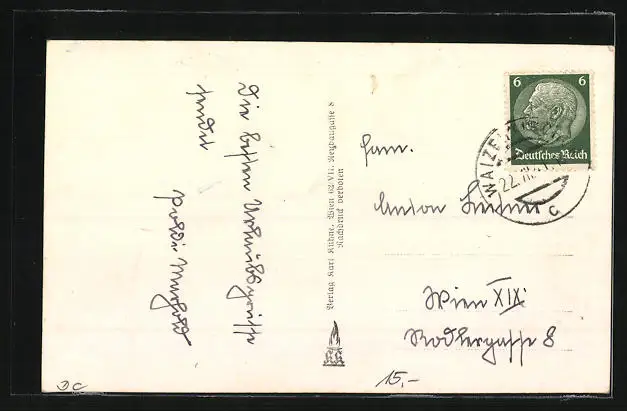 Die besten Urlaubsgrüsse
sendet
Verlag Karl Kühne, Wien 62/VII, Neubaugasse 8
Nachdruck verboten
6 6
Deutsches Reich
WALZE
22.
c
Fam.
Anton
Wien XIX
Rodlergasse 8
KK
15,-